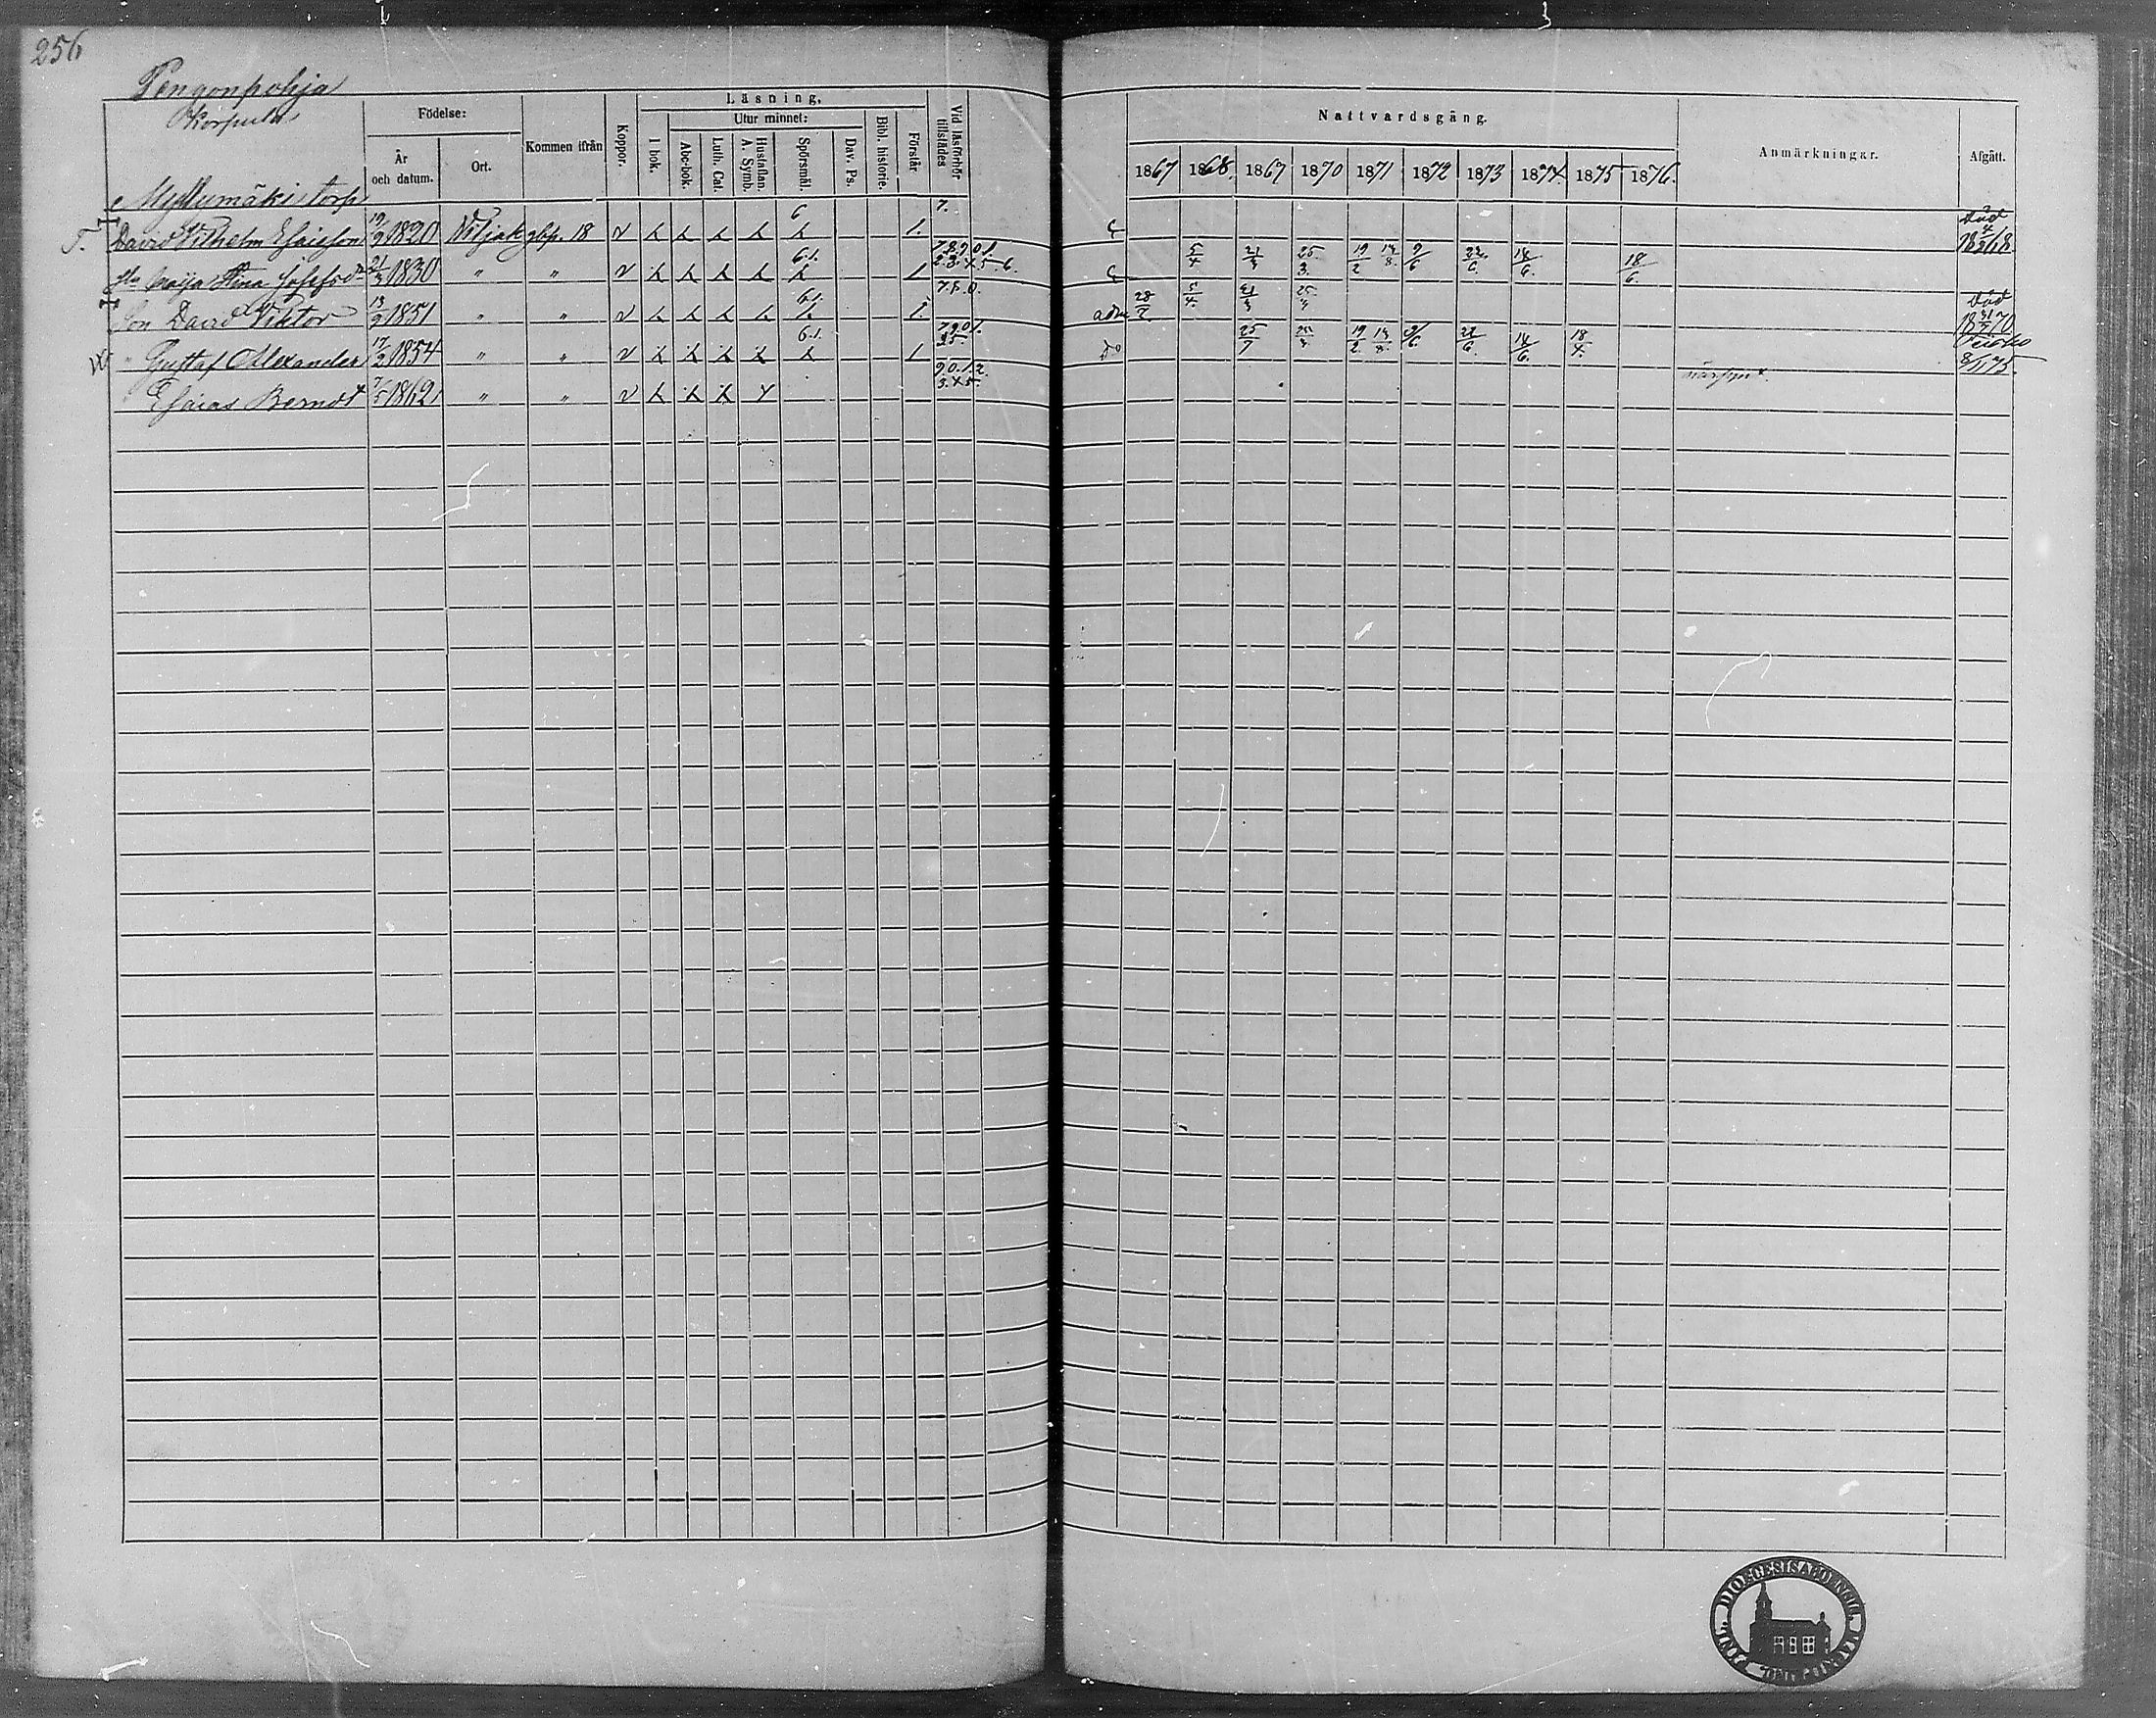 256
Pengonpohja
Korpula
Födelse:
År och datum.
Ort.
Kommen ifrån
Koppor.
Läsning.
I bok.
Utur minnet:
Abc-bok.
Luth. Cat.
Hustaflan. A. Symb.
Spörsmål.
Dav. Ps.
Bibl. historie.
Förstår
Vid läsförhör tillstädes
Nattvardsgång.
1867 1868. 1867 1870 1871 1872 1873 1874. 1875 1876.
Anmärkningar.
Afgått.
Myllymäki torp
T. David Vilhelm Esaiasson 19/9 1820 Viljak gbp. 18 6 7. 1. död 1868
Hu Maija Stina Josefsdr 21/3 1830 " " 6.1. 7.8.9.0.1. 2.3.4.5.6. 1 5/4 21/3 25/3. 19/2 13/8. 9/6 22/6. 14/6. 18/6.
Son David Viktor 13/9 1851 " " 6.1. 7.8.0. 1. adm 28/7 5/4. 21/3 25/3 död 1870
" Gustaf Alexander 17/2 1854 " " 6.1. 7.9.0.1. 3.5. 1 do 25/7 25/3 19/2. 13/8. 9/6. 22/6. 14/6. 18/4. 8/11 75.
" Esaias Berndt 7/5 1862 " " 9.0.1.2. 3.4.5.